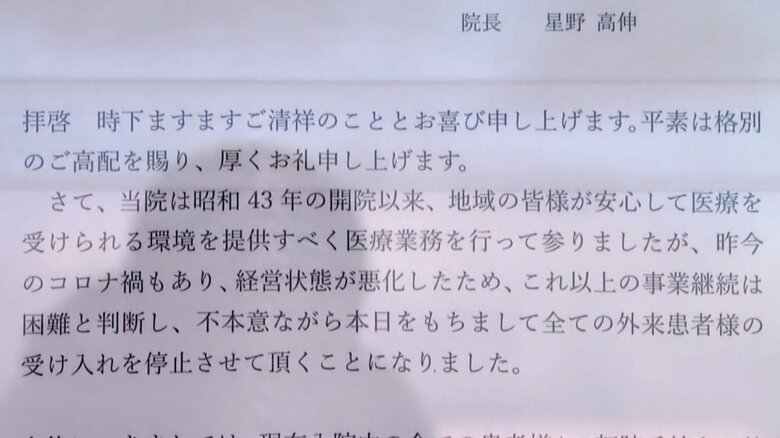 院長 星野 高伸
拝啓 時下ますますご清祥のこととお喜び申し上げます。平素は格別
のご高配を賜り、厚くお礼申し上げます。
さて、当院は昭和 43 年の開院以来、地域の皆様が安心して医療を
受けられる環境を提供すべく医療業務を行って参りましたが、昨今
のコロナ禍もあり、経営状態が悪化したため、これ以上の事業継続は
困難と判断し、不本意ながら本日をもちまして全ての外来患者様の
受け入れを停止させて頂くことになりました。